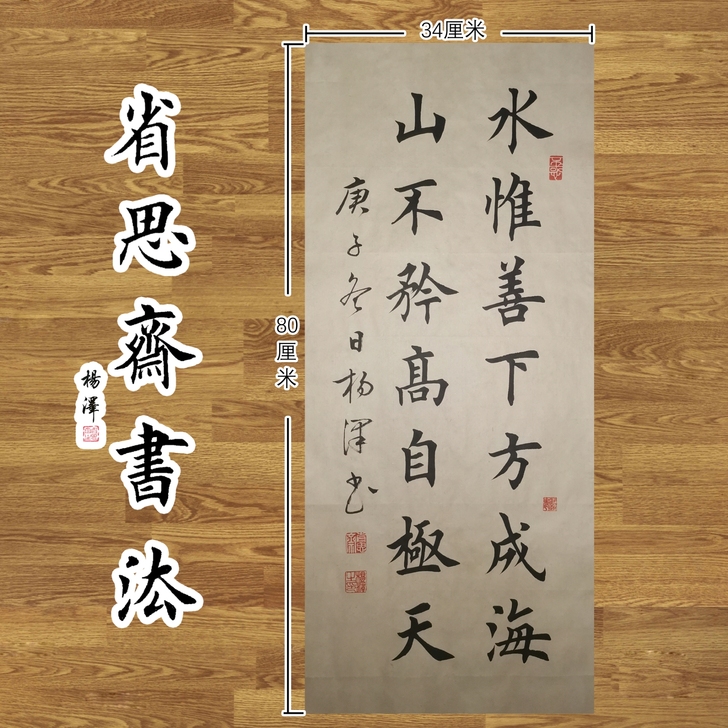 34厘米
80厘米
水惟善下方成海
山不矜高自極天
庚子冬日杨泽书
省思齋書法
楊澤